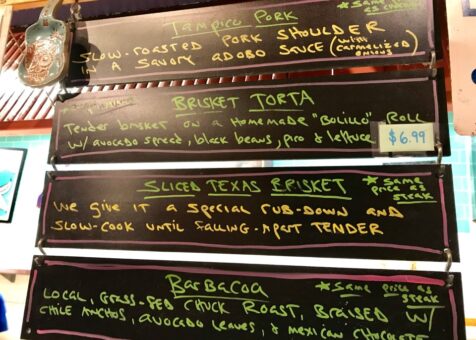 TAMPICO PORK
* Same as chicken
SLOW-ROASTED PORK SHOULDER
IN A SAVORY ADOBO SAUCE (with CARAMELIZED ONIONS)
BRISKET TORTA
Tender brisket on a Homemade "Bolillo" ROLL
w/ avocado spread, black beans, pico & lettuce
$6.99
SLICED TEXAS BRISKET
* Same price as steak
We give it a special rub-down and
slow-cook until falling-apart TENDER
BARBACOA
* Same price as steak
Local, Grass-Fed Chuck Roast, Braised w/
Chile Anchos, avocado leaves, & mexican chocolate